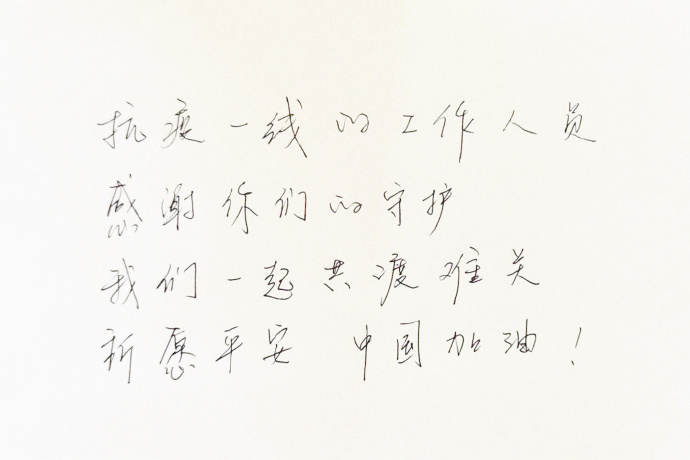 抗疫一线的工作人员
感谢你们的守护
我们一起共渡难关
祈愿平安 中国加油!